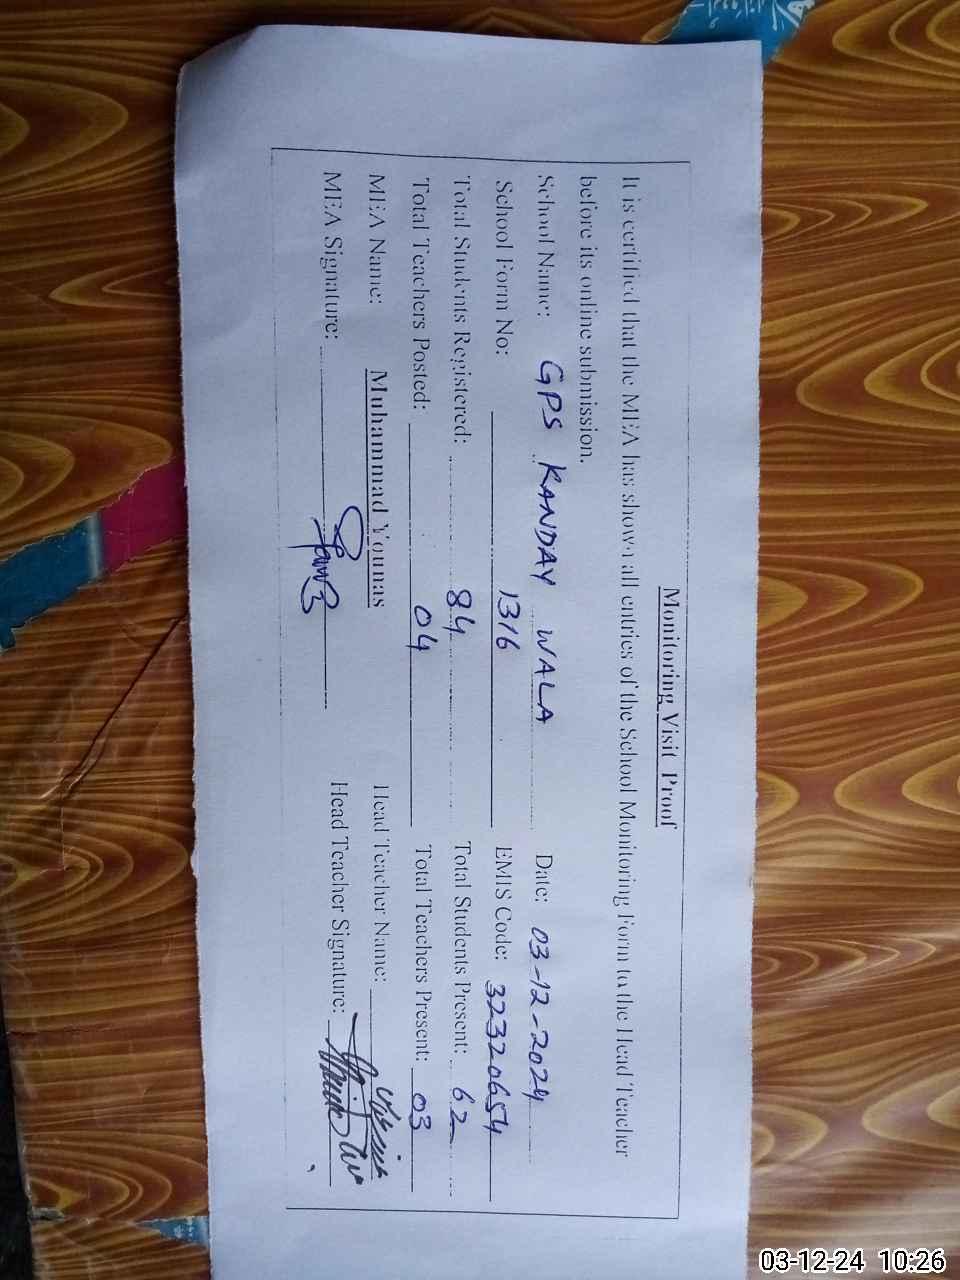 Monitoring Visit Proof
It is certified that the MEA has shown all entries of the School Monitoring Form to the Head Teacher
before its online submission.
School Name: GPS KANDAY WALA Date: 03-12-2024
School Form No: 1316 EMIS Code: 32320654
Total Students Registered: 84 Total Students Present: 62
Total Teachers Posted: 04 Total Teachers Present: 03
MEA Name: Muhammad Younas Head Teacher Name:
MEA Signature: Head Teacher Signature:
03-12-24 10:26